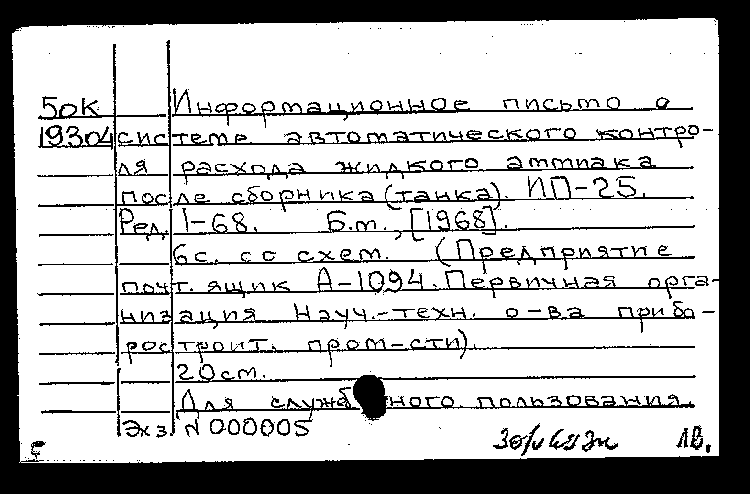 БОК Информационное письмо о
19304 системе автоматического контро-
ля расхода жидкого аммиака
после сборника (танка). ИП-25.
Ред. 1-68. Б.м., [1968].
6с. со схем. (Предприятие
почт. ящик А-1094. Первичная орга-
низация Науч.-техн. о-ва прибо-
ростроит. пром-сти).
20см.
Для служебного пользования.
Экз. N 000005
1в.